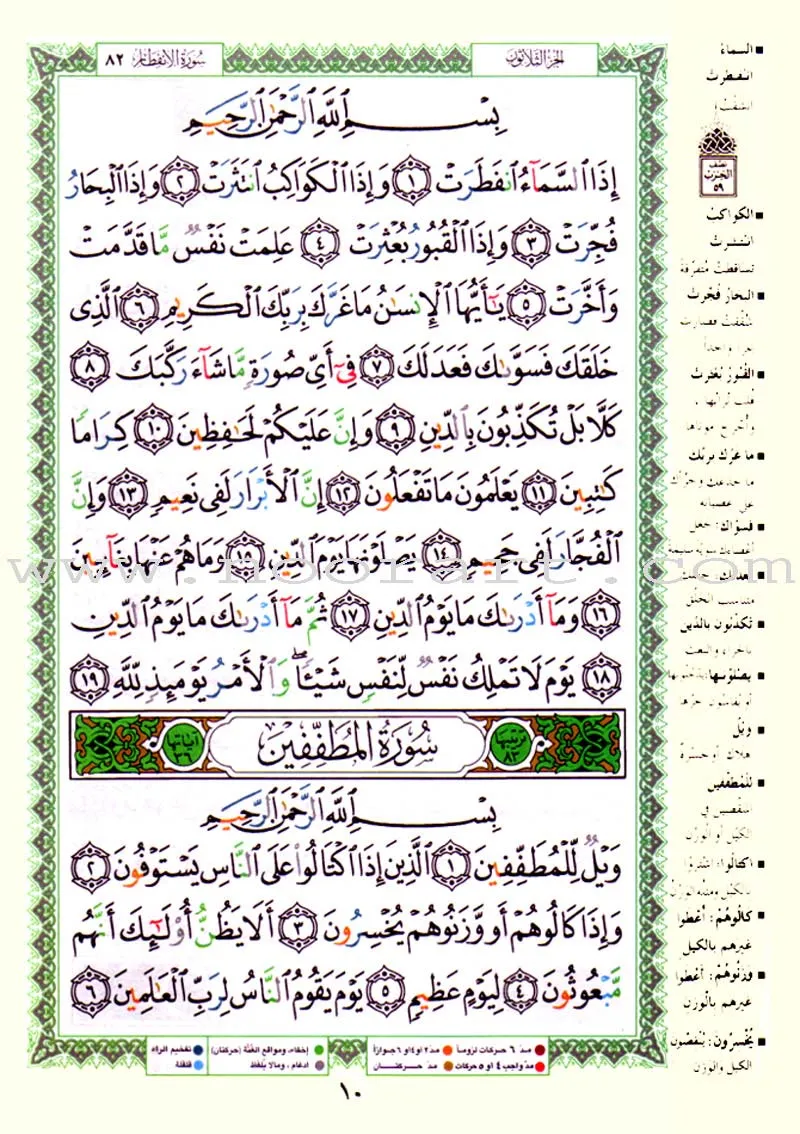 سُورَةُ الانفِطَار ٨٢
الجزء الثلاثون
بِسْمِ ٱللَّهِ ٱلرَّحْمَٰنِ ٱلرَّحِيمِ
إِذَا ٱلسَّمَآءُ ٱنفَطَرَتْ ١ وَإِذَا ٱلْكَوَاكِبُ ٱنتَثَرَتْ ٢ وَإِذَا ٱلْبِحَارُ
فُجِّرَتْ ٣ وَإِذَا ٱلْقُبُورُ بُعْثِرَتْ ٤ عَلِمَتْ نَفْسٌ مَّا قَدَّمَتْ
وَأَخَّرَتْ ٥ يَٰٓأَيُّهَا ٱلْإِنسَٰنُ مَا غَرَّكَ بِرَبِّكَ ٱلْكَرِيمِ ٦ ٱلَّذِى
خَلَقَكَ فَسَوَّىٰكَ فَعَدَلَكَ ٧ فِىٓ أَىِّ صُورَةٍ مَّا شَآءَ رَكَّبَكَ ٨
كَلَّا بَلْ تُكَذِّبُونَ بِٱلدِّينِ ٩ وَإِنَّ عَلَيْكُمْ لَحَٰفِظِينَ ١٠ كِرَامًا
كَٰتِبِينَ ١١ يَعْلَمُونَ مَا تَفْعَلُونَ ١٢ إِنَّ ٱلْأَبْرَارَ لَفِى نَعِيمٍ ١٣ وَإِنَّ
ٱلْفُجَّارَ لَفِى جَحِيمٍ ١٤ يَصْلَوْنَهَا يَوْمَ ٱلدِّينِ ١٥ وَمَا هُمْ عَنْهَا بِغَآئِبِينَ
١٦ وَمَآ أَدْرَىٰكَ مَا يَوْمُ ٱلدِّينِ ١٧ ثُمَّ مَآ أَدْرَىٰكَ مَا يَوْمُ ٱلدِّينِ
١٨ يَوْمَ لَا تَمْلِكُ نَفْسٌ لِّنَفْسٍ شَيْـًٔا ۖ وَٱلْأَمْرُ يَوْمَئِذٍ لِّلَّهِ ١٩
ترتيبها ٨٣ سُورَةُ المُطَفِّفِينَ آياتها ٣٦
بِسْمِ ٱللَّهِ ٱلرَّحْمَٰنِ ٱلرَّحِيمِ
وَيْلٌ لِّلْمُطَفِّفِينَ ١ ٱلَّذِينَ إِذَا ٱكْتَالُوا۟ عَلَى ٱلنَّاسِ يَسْتَوْفُونَ ٢
وَإِذَا كَالُوهُمْ أَو وَّزَنُوهُمْ يُخْسِرُونَ ٣ أَلَا يَظُنُّ أُو۟لَٰٓئِكَ أَنَّهُم
مَّبْعُوثُونَ ٤ لِيَوْمٍ عَظِيمٍ ٥ يَوْمَ يَقُومُ ٱلنَّاسُ لِرَبِّ ٱلْعَٰلَمِينَ ٦
السماءُ
انفطرت
انشقت
نصف الحزب ٥٩
الكواكبُ
انتثرت
تساقطت متفرقة
البحارُ فُجِّرت
شققت فصارت
بحرا واحداً
القبورُ بُعثرت
قلب ترابها ،
وأخرج موتاها
ما غرّك بربّك
ما خدعك وجرّأك
على عصيانه
فسوّاك: جعل
أعضاءك سوية سليمة
فعدلك: جعلك
متناسب الخلق
تكذبون بالدين
بالجزاء والبعث
يصلونها: يدخلونها
أو يقاسون حرّها
ويلٌ
هلاك أو حسرةٌ
للمطففين
المنقصين في
الكيل أو الوزن
اكتالوا: اشتروا
بالكيل ومثله الوزن
كالُوهُمْ: أعْطوا
غيرهم بالكيل
وزنُوهُمْ: أعْطوا
غيرهم بالوزن
يُخْسرُون: يُنقصُون
الكيل والوزن
مدّ ٦ حركات لزوماً
مدّ ٢ أو ٤ أو ٦ جوازاً
إخفاء، ومواقع الغُنَّة (حركتان)
تفخيم الراء
مدّ واجب ٤ أو ٥ حركات
مدّ حركتان
ادغام ، وما لا يُلفظ
قلقلة
١٠
www.noorart.com